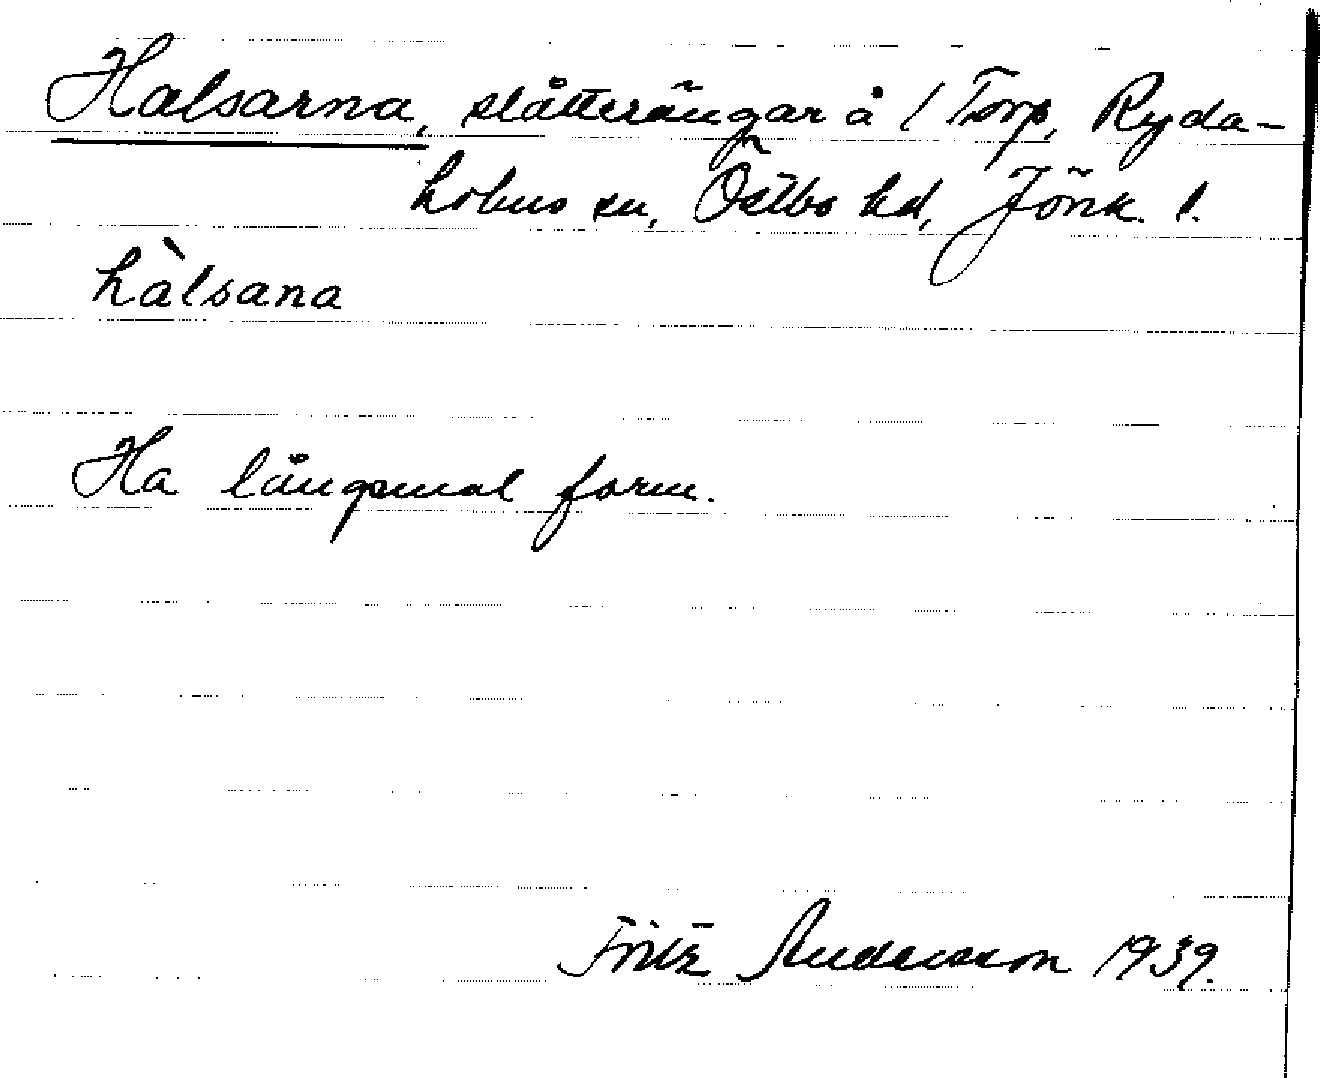 Halsarna, slåtterängar å 1 Torp, Ryda-
holms sn, Östbo hd, Jönk. l.
hàlsana
Ha långsmal form.
Fritz Andersson 1939.